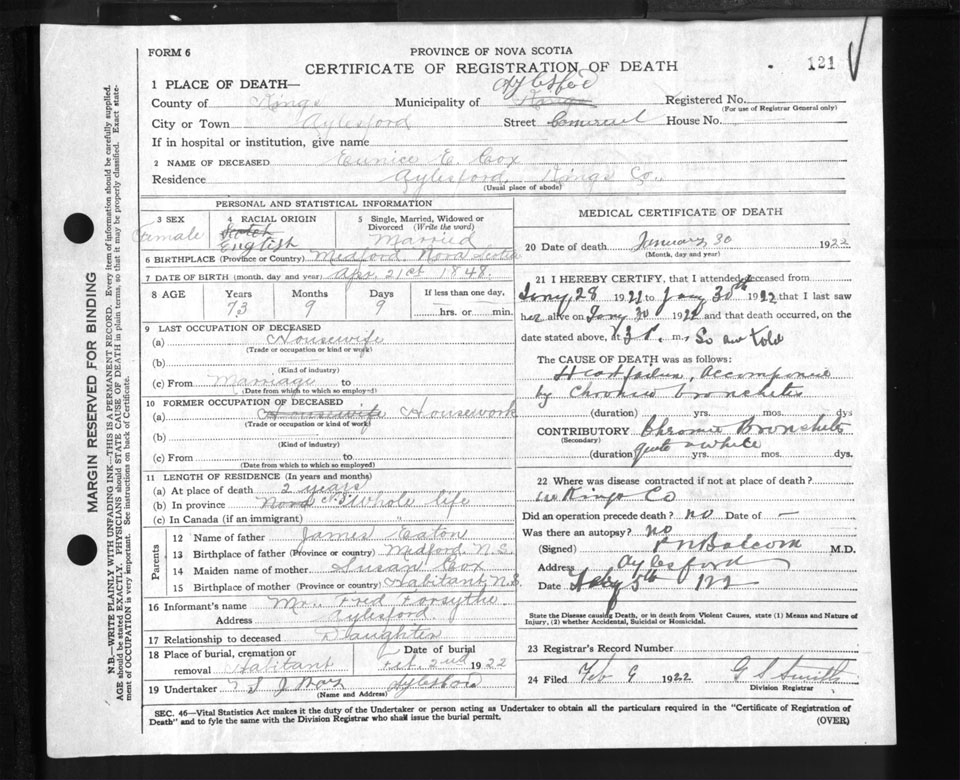 FORM 6
PROVINCE OF NOVA SCOTIA
CERTIFICATE OF REGISTRATION OF DEATH
121
1 PLACE OF DEATH—
County of Kings Municipality of Kings Registered No.
(For use of Registrar General only)
City or Town Aylesford Street Comercial House No.
If in hospital or institution, give name
2 NAME OF DECEASED Eunice E. Cox
Residence Aylesford Kings Co.,
(Usual place of abode)
PERSONAL AND STATISTICAL INFORMATION
3 SEX Female
4 RACIAL ORIGIN Scotch English
5 Single, Married, Widowed or Divorced (Write the word) Married
6 BIRTHPLACE (Province or Country) Medford Nova Scotia
7 DATE OF BIRTH (month, day and year) Apr. 21st 1848.
8 AGE Years 73 Months 9 Days 9 If less than one day, hrs. or min.
9 LAST OCCUPATION OF DECEASED
(a) Housewife
(Trade or occupation or kind of work)
(b)
(Kind of industry)
(c) From Marriage to
(Date from which to which so employed)
10 FORMER OCCUPATION OF DECEASED
(a) Housewife Housework
(Trade or occupation or kind of work)
(b)
(Kind of industry)
(c) From to
(Date from which to which so employed)
11 LENGTH OF RESIDENCE (In years and months)
(a) At place of death 2 years
(b) In province whole life
(c) In Canada (if an immigrant)
Parents
12 Name of father James Eaton
13 Birthplace of father (Province or country) Medford N.S.
14 Maiden name of mother Susan Cox
15 Birthplace of mother (Province or country) Habitant N.S.
16 Informant's name Mrs. Fred Forsythe
Address Aylesford
17 Relationship to deceased Daughter
18 Place of burial, cremation or removal Habitant Date of burial Feb. 2nd 1922
19 Undertaker Aylesford
(Name and Address)
MEDICAL CERTIFICATE OF DEATH
20 Date of death January 30 1922
(Month, day and year)
21 I HEREBY CERTIFY, that I attended deceased from
Jany 28 1922 to Jany 30th 1922 that I last saw
her alive on Jany 30 1922 and that death occurred, on
the date stated above, at 3 P. m. So am told
The CAUSE OF DEATH was as follows:
Heart failure, Accompanied
by Chronic bronchitis
(duration) yrs. mos. dys
CONTRIBUTORY Chronic Bronchitis
(Secondary)
(duration quite a while yrs. mos. dys.
22 Where was disease contracted if not at place of death?
in Kings Co
Did an operation precede death? no Date of —
Was there an autopsy? no
(Signed) Balcom M.D.
Address Aylesford
Date Feby 5th 1922
State the Disease causing Death, or in death from Violent Causes, state (1) Means and Nature of
Injury, (2) whether Accidental, Suicidal or Homicidal.
23 Registrar's Record Number
24 Filed Feb 9 1922 G S Smith
Division Registrar
SEC. 46—Vital Statistics Act makes it the duty of the Undertaker or person acting as Undertaker to obtain all the particulars required in the "Certificate of Registration of
Death" and to fyle the same with the Division Registrar who shall issue the burial permit.
(OVER)
MARGIN RESERVED FOR BINDING
N.B.—WRITE PLAINLY WITH UNFADING INK—THIS IS A PERMANENT RECORD. Every item of information should be carefully supplied.
AGE should be stated EXACTLY. PHYSICIANS should STATE CAUSE OF DEATH in plain terms, so that it may be properly classified. Exact state-
ment of OCCUPATION is very important. See instructions on back of Certificate.